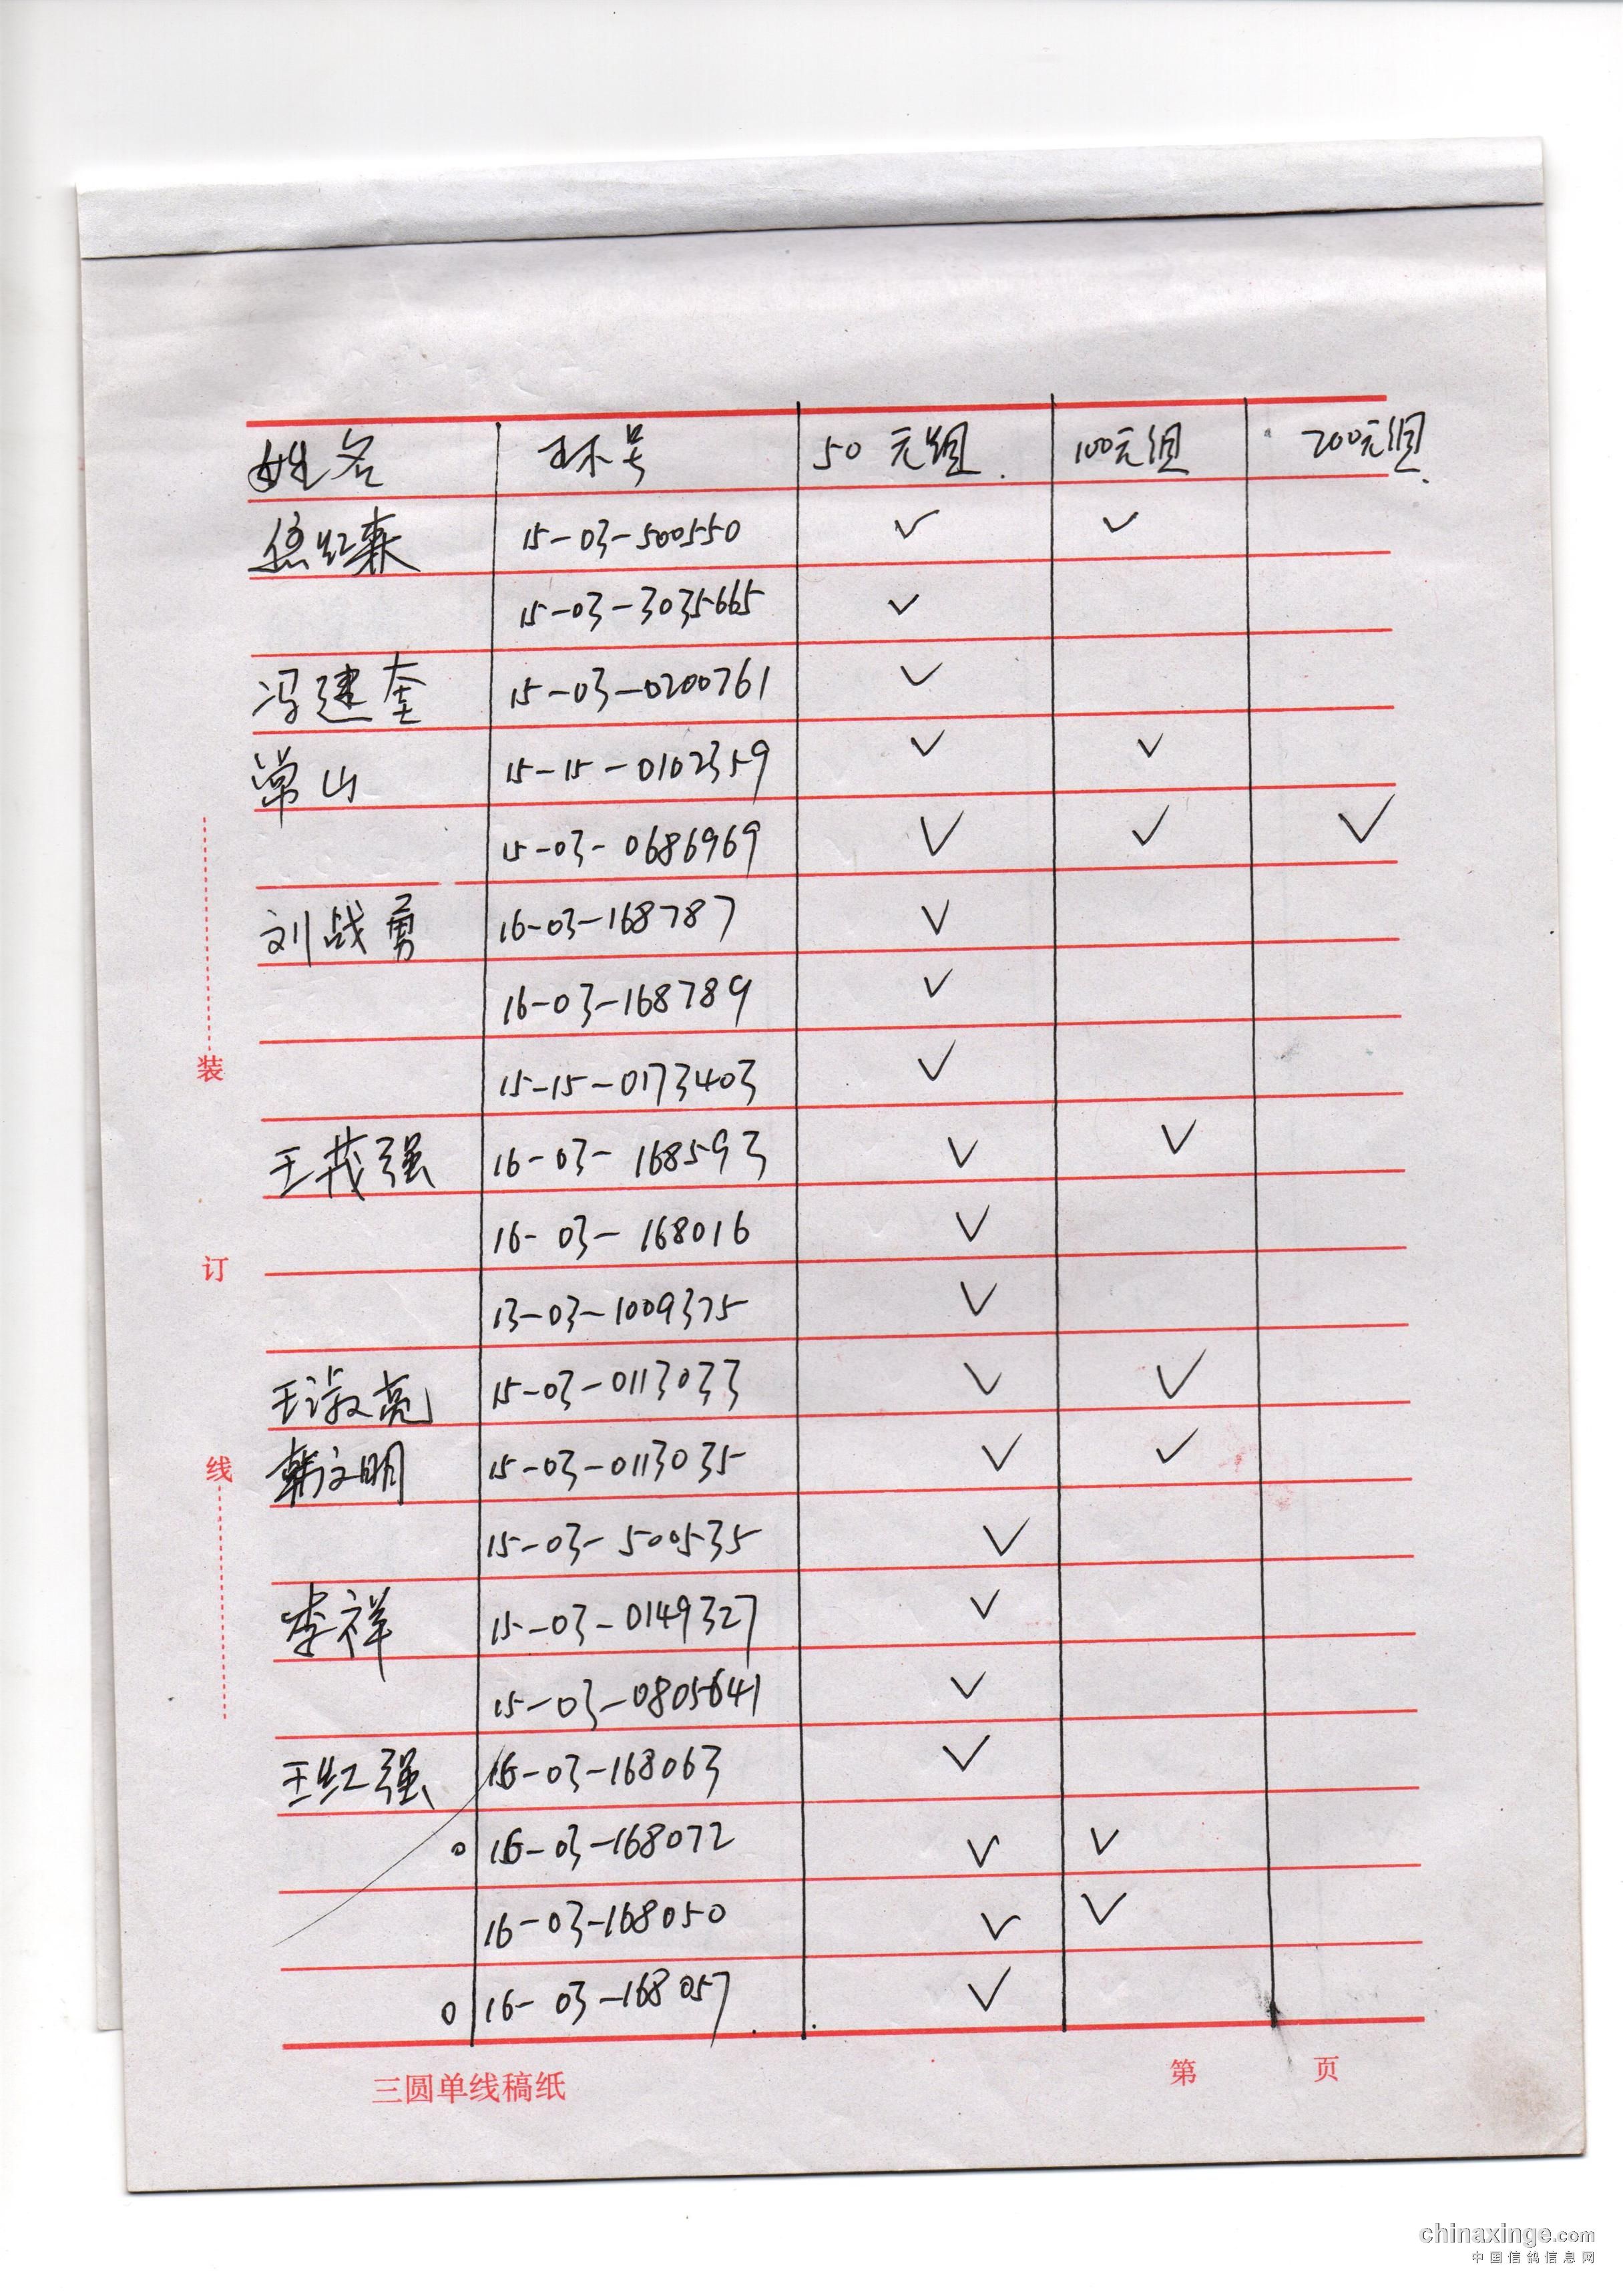 姓名 环号 50元组. 100元组 200元组.
红森 15-03-500550 ✓ ✓
15-03-3035665 ✓
冯建奎 15-03-0200761 ✓
常山 15-15-0102359 ✓ ✓
15-03-0686969 ✓ ✓ ✓
刘战勇 16-03-168787 ✓
16-03-168789 ✓
15-15-0173403 ✓
装
王茂强 16-03-168593 ✓ ✓
16-03-168016 ✓
订
13-03-1009375 ✓
王淑亮 15-03-0113033 ✓ ✓
线
韩文明 15-03-0113035 ✓ ✓
15-03-500535 ✓
李祥 15-03-0149327 ✓
15-03-0805641 ✓
王红强 16-03-168063 ✓
0 16-03-168072 ✓ ✓
16-03-168050 ✓ ✓
0 16-03-168057 ✓
三圆单线稿纸 第 页
chinaxinge.com
中国信鸽信息网